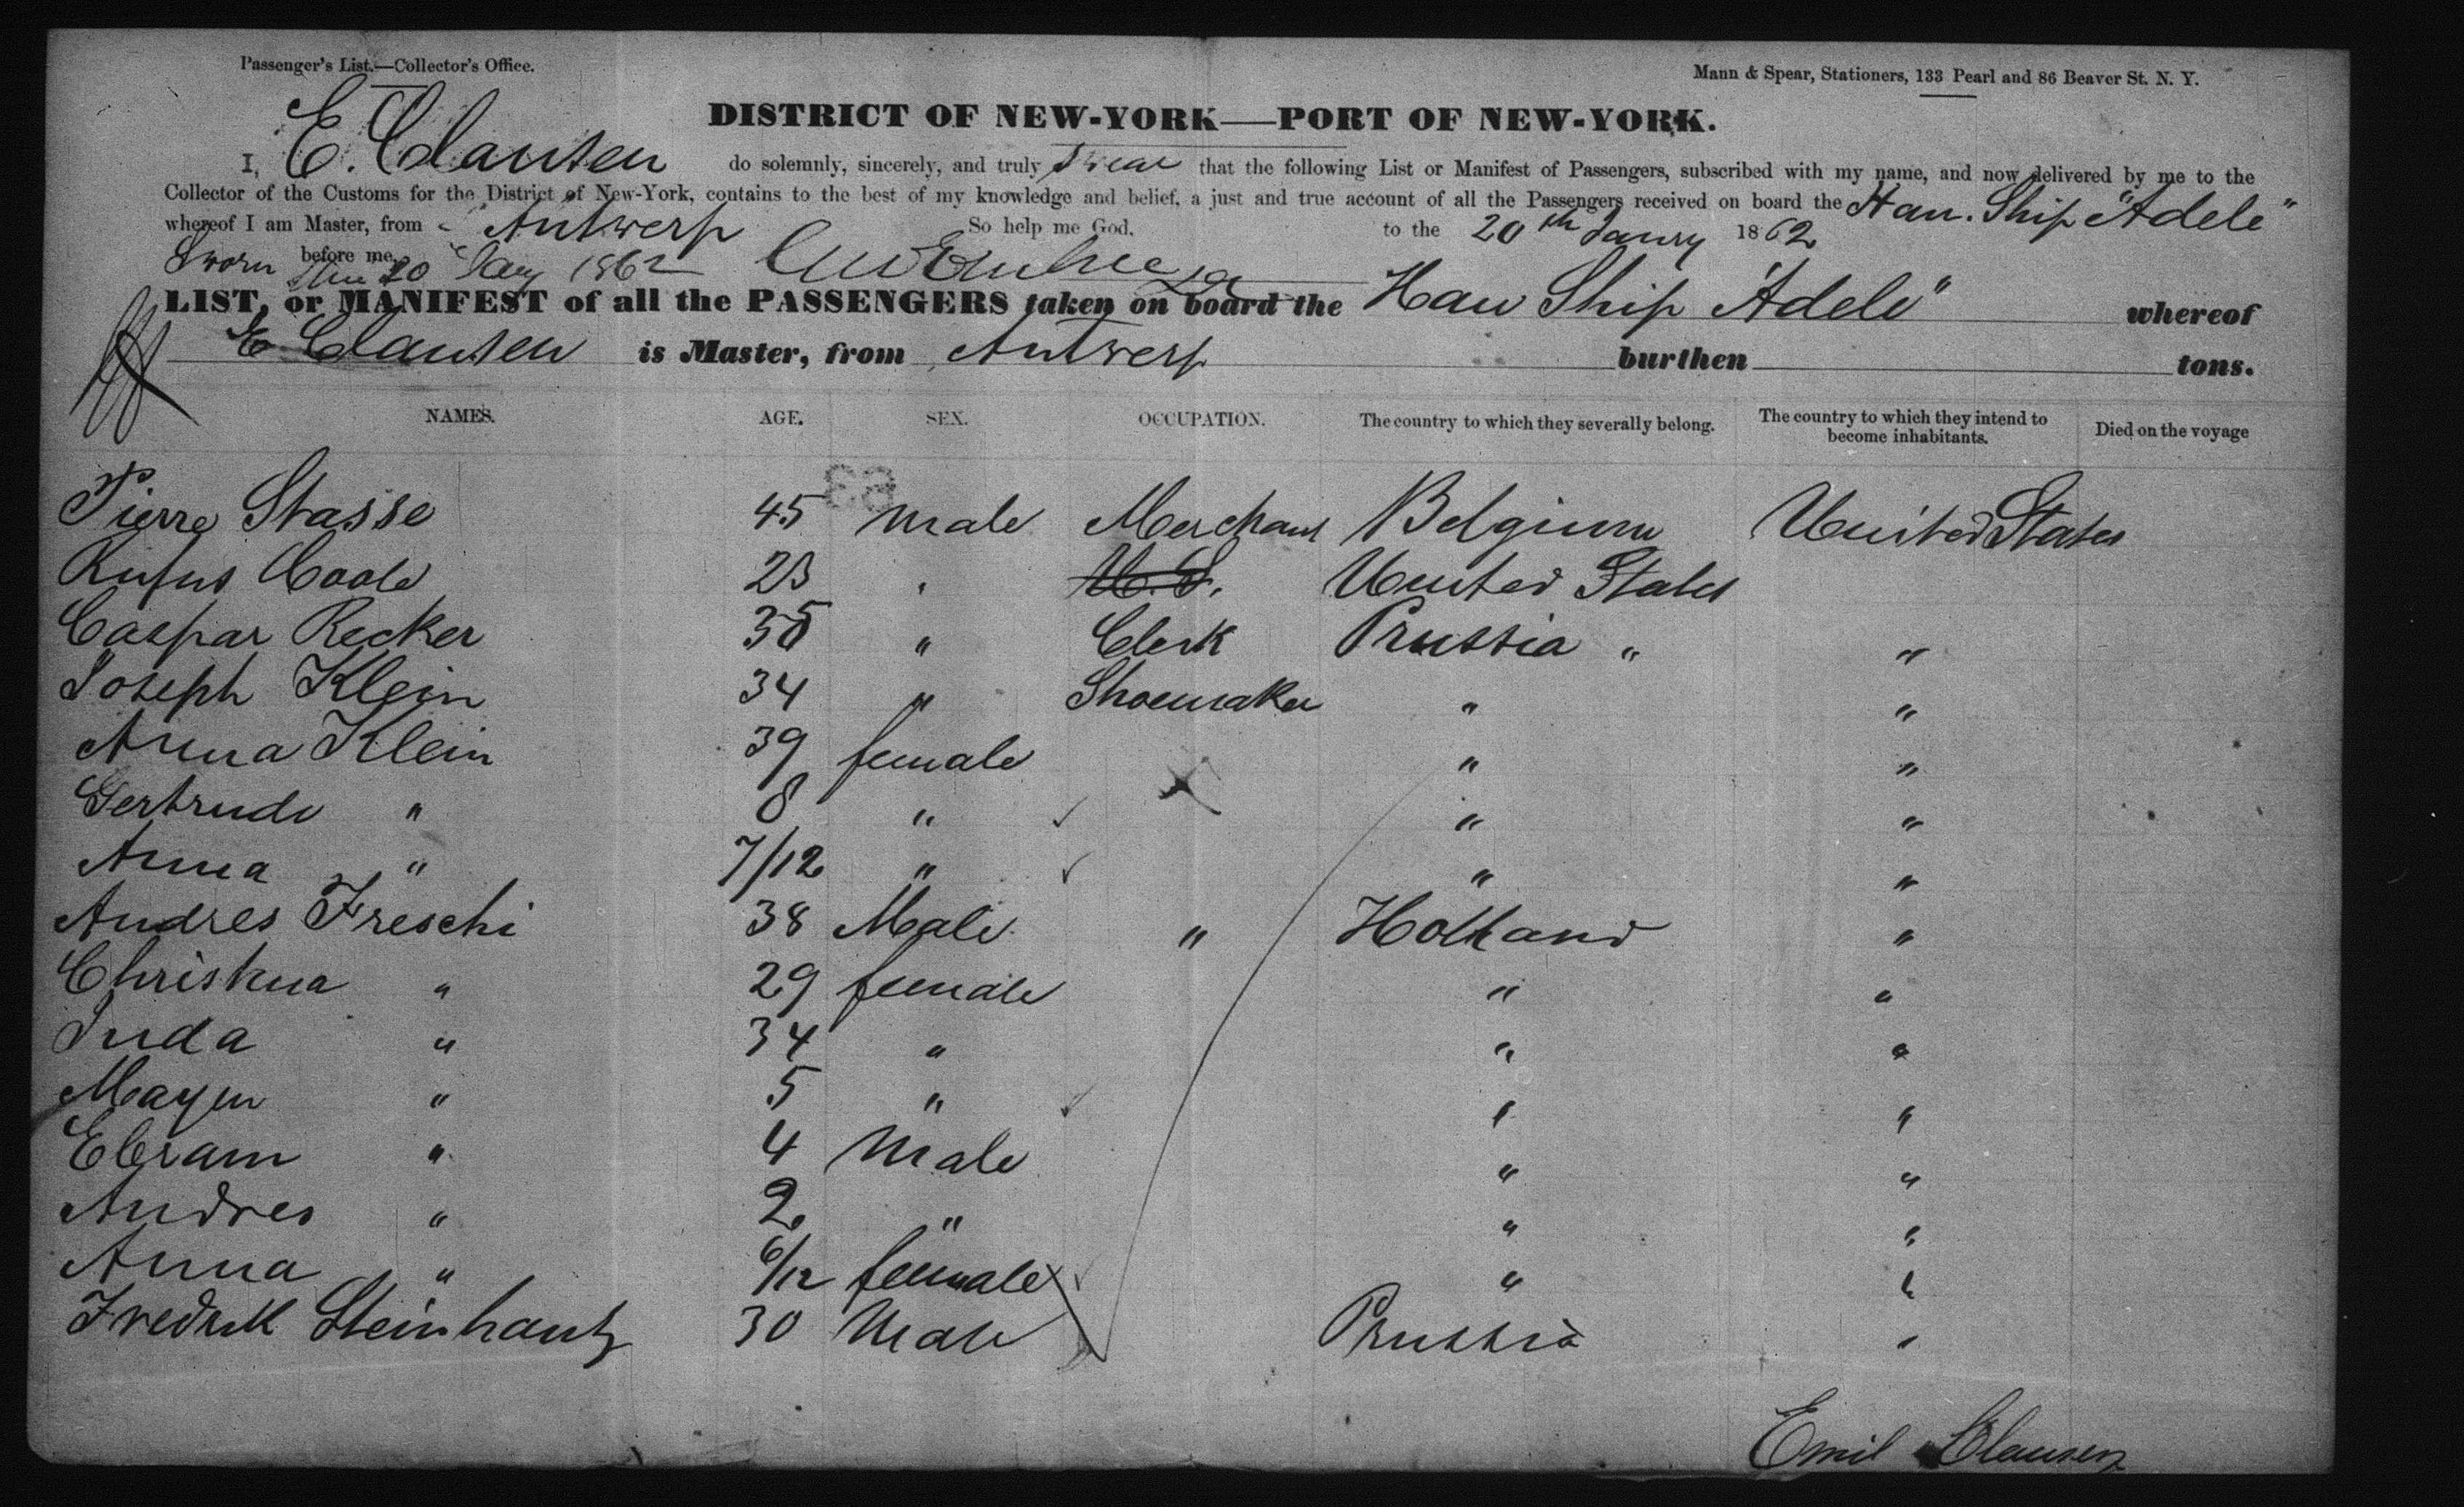 Passenger's List.—Collector's Office.
Mann & Spear, Stationers, 133 Pearl and 86 Beaver St. N. Y.
DISTRICT OF NEW-YORK—PORT OF NEW-YORK.
I, E. Clausen do solemnly, sincerely, and truly swear that the following List or Manifest of Passengers, subscribed with my name, and now delivered by me to the
Collector of the Customs for the District of New-York, contains to the best of my knowledge and belief, a just and true account of all the Passengers received on board the Han. Ship "Adele"
whereof I am Master, from Antwerp So help me God. to the 20th Janry 1862
Sworn before me,
this 20 Jany 1862
LIST, or MANIFEST of all the PASSENGERS taken on board the Han Ship "Adele" whereof
E Clausen is Master, from Antwerp burthen tons.
NAMES. AGE. SEX. OCCUPATION. The country to which they severally belong. The country to which they intend to become inhabitants. Died on the voyage
Pierre Stasse 45 male Merchant Belgium United States
Rufus Coole 23 " U.S. United States
Caspar Recker 38 " Clerk Prussia " "
Joseph Klein 34 " Shoemaker " "
Anna Klein 39 female " "
Gertrude " 8 " " "
Anna " 7/12 " " "
Andres Freschi 38 Male " Holland "
Christina " 29 female " "
Juda " 34 " " "
Mayen " 5 " " "
Ebram " 4 Male " "
Andres " 2 " " "
Anna " 6/12 female " "
Fredrik Steinhautz 30 Male Prussia "
Emil Clausen